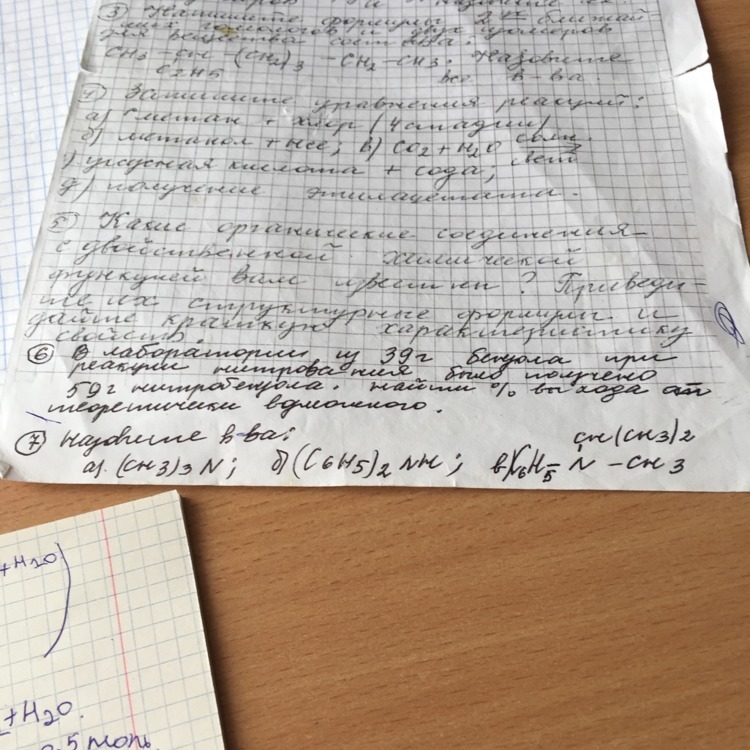 ③ Напишите формулы 2ух ближай-
ших гомологов и двух изомеров
для вещества состава:
CH3 - CH - (CH2)3 - CH2 - CH3. Назовите
C2H5 все в-ва.
④ Запишите уравнения реакций:
а) метан + хлор (4 стадии)
б) метанол + HCl; в) CO2 + H2O свет
г) уксусная кислота + сода;
д) получение этилацетата.
⑤ Какие органические соединения
с двойственной химической
функцией вам известны? Приведи-
те их структурные формулы и
дайте краткую характеристику
свойств.
⑥ В лаборатории из 39г бензола при
реакции нитрования было получено
59г нитробензола. найти % выхода от
теоретически возможного.
⑦ Назовите в-ва:
CH(CH3)2
а). (CH3)3N; б) (C6H5)2NH; в) C6H5-N-CH3
+H2O
+H2O.
0,5 моль